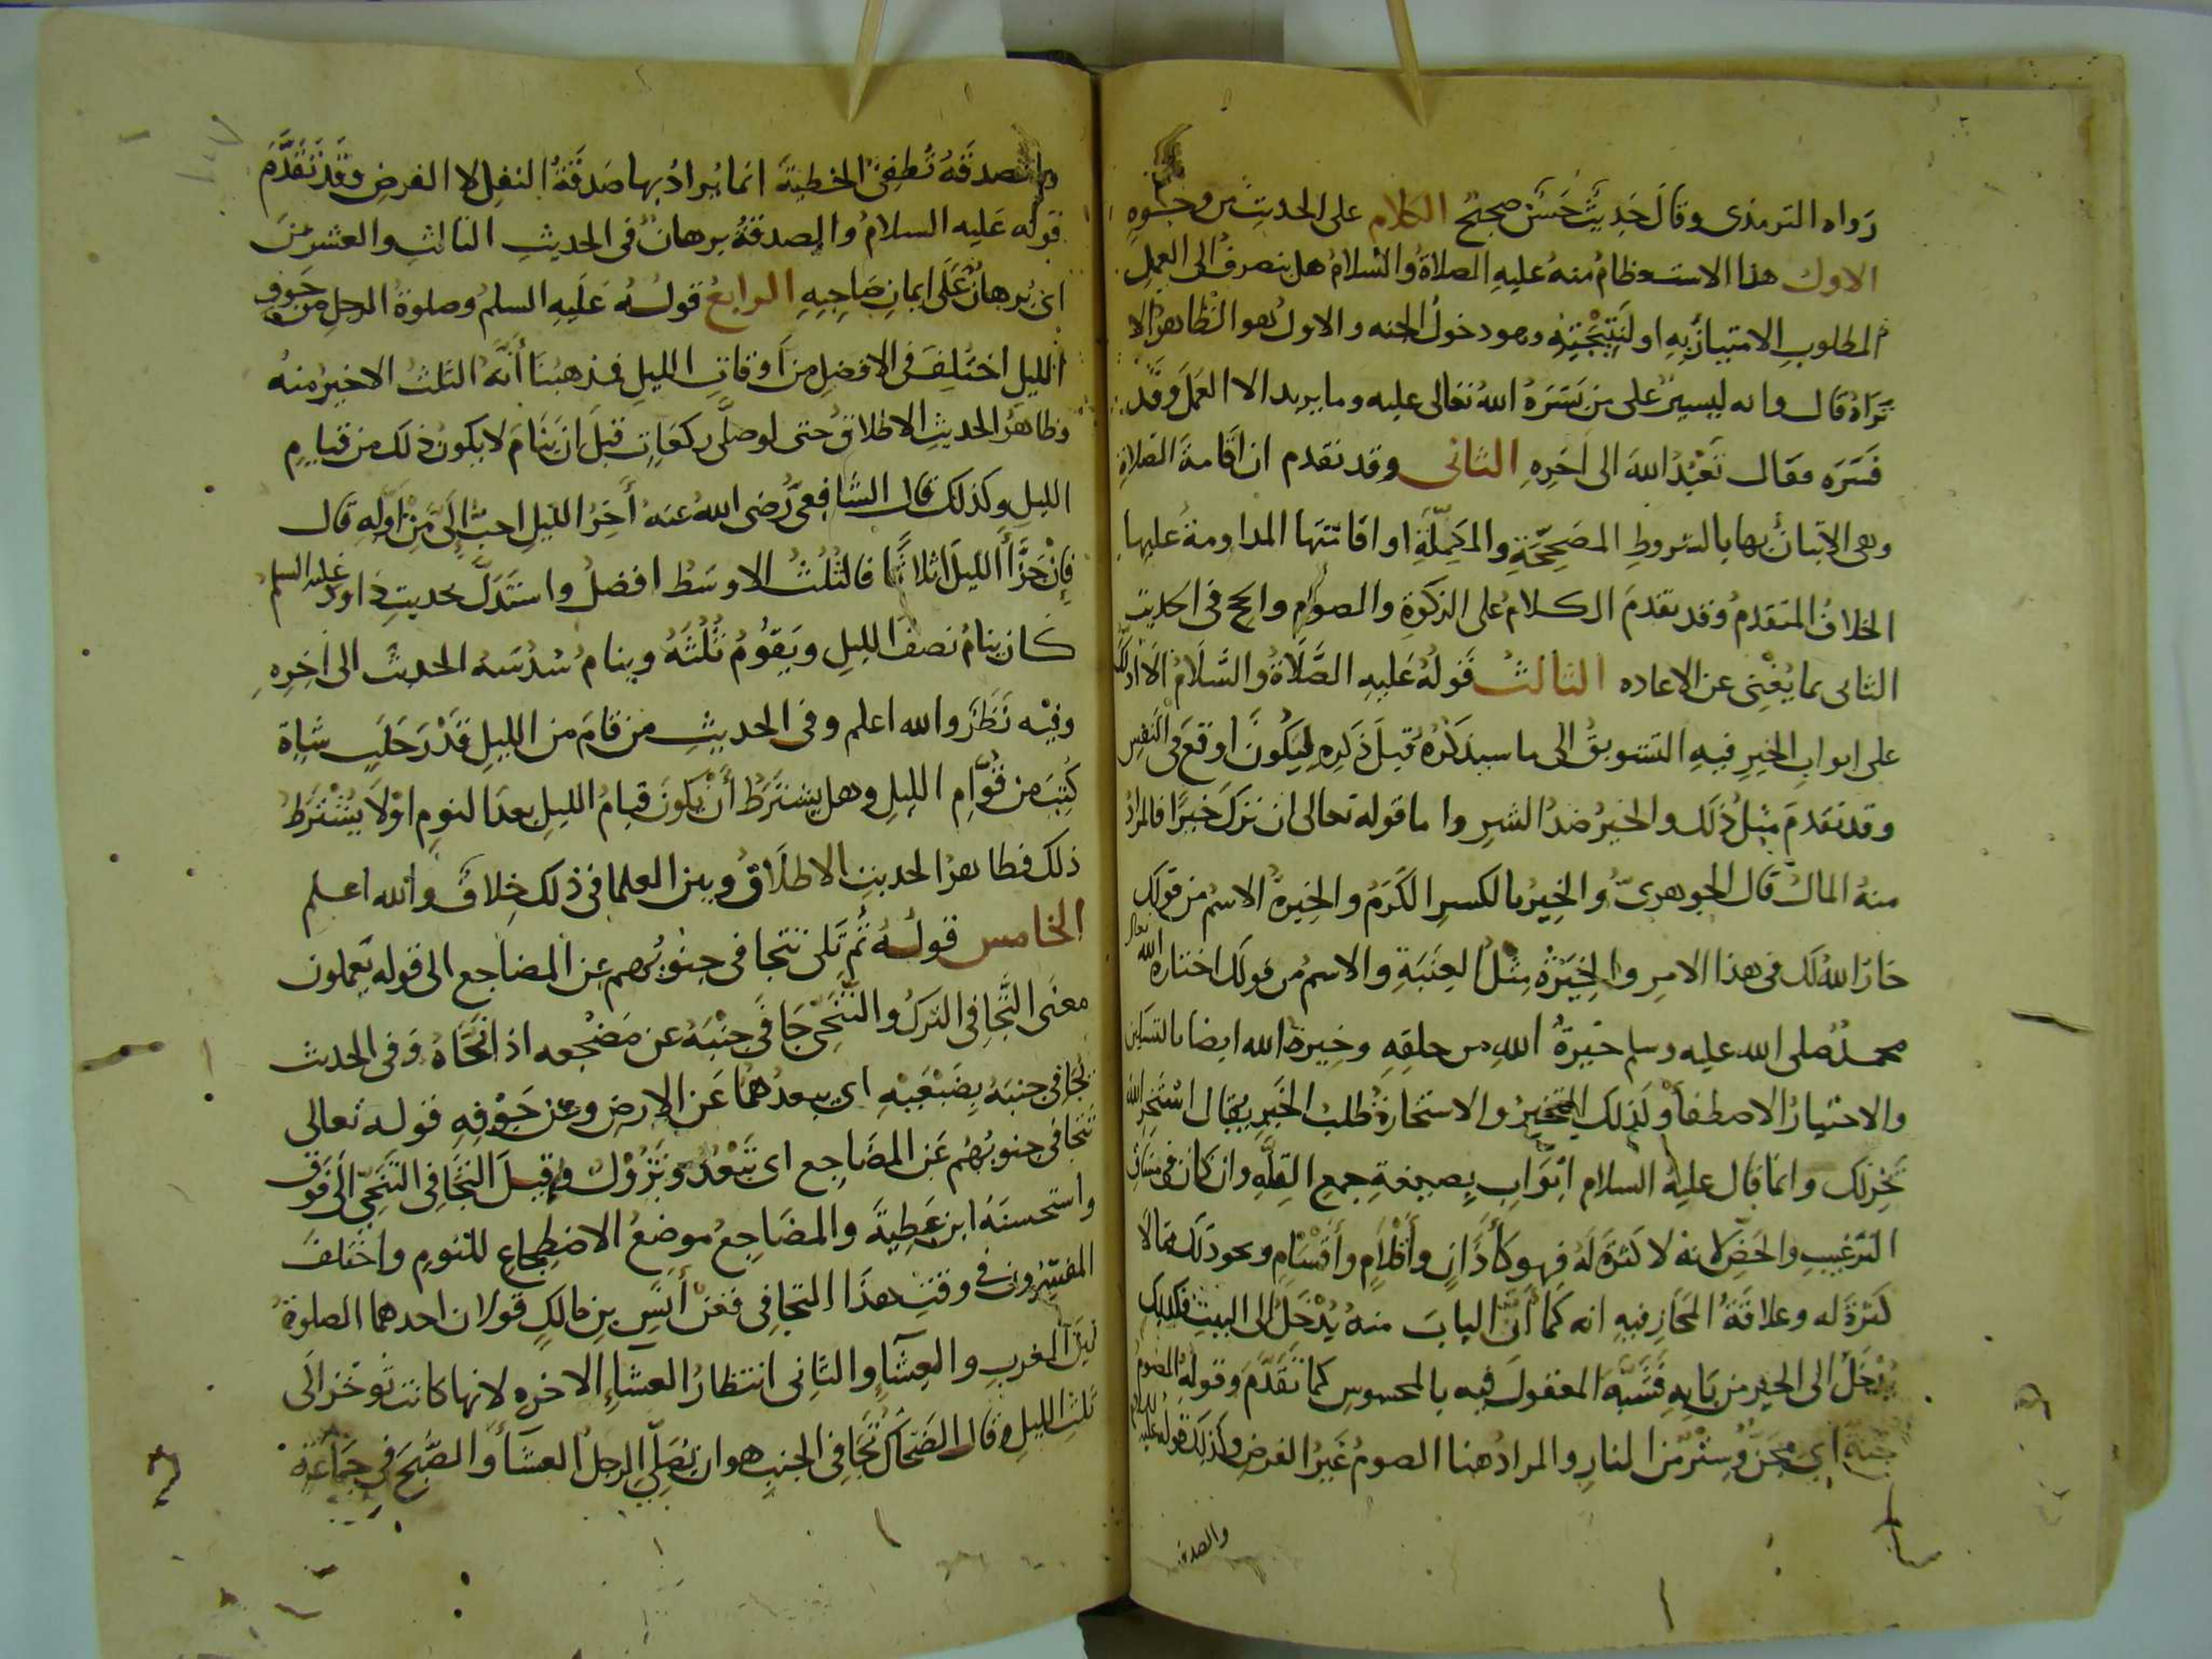 رواه الترمذى وقال حديث حسن صحيح الكلام على الحديث من وجوه
الاول هذا الاستعظام منه عليه الصلاة والسلام هل ينصرف الى العمل
المطلوب الاتيان به او لنتيجته وهو دخول الجنه والاول هو الظاهر الا
تراه قال وانه ليسير على من يسره الله تعالى عليه وما يريد الا العمل وقد
فسره فقال تعبد الله الى اخره الثانى وقد تقدم ان اقامة الصلاة
وهى الاتيان بها بالشروط المصححة والمكملة او اقامتها المداومة عليها
الخلاف المتقدم وقد تقدم الكلام على الزكوة والصوم والحج فى الحديث
الثانى بما يغنى عن الاعاده الثالث قوله عليه الصلاة والسلام الا ادلك
على ابواب الخير فيه التشويق الى ما سيذكره قبل ذكره ليكون اوقع فى النفس
وقد تقدم مثل ذلك والخير ضد الشر واما قوله تعالى ان ترك خيرا فالمراد
منه المال قال الجوهرى والخير بالكسر الكرم والخيرة الاسم من قولك
خار الله لك فى هذا الامر والخيرة مثل العنبة والاسم من قولك اختاره الله تعالى
محمد صلى الله عليه وسلم خيرة الله من خلقه وخيرة الله ايضا بالتسكين
والاختيار الاصطفا وكذلك التخير والاستخارة طلب الخير يقال استخر الله
يخر لك وانما قال عليه السلام ابواب بصيغة جمع القله وان كان فى
الترغيب والحض لانه لا كثرة له فهو كأذان وأقلام وأقسام ونحو ذلك مما لا
كثرة له وعلاقة المجاز فيه انه كما ان الباب منه يدخل الى البيت فكذلك
يدخل الى الخير من بابه فشبه المعقول فيه بالمحسوس كما تقدم وقوله الصوم
جنة اى مجن وستر من النار والمراد هنا الصوم غير الفرض وكذلك قوله عليه السلام
والصدقة
والصدقة تطفئ الخطيئة انما يراد بها صدقة النفل لا الفرض وقد تقدم
قوله عليه السلام والصدقة برهان فى الحديث الثالث والعشرين
اى برهان على ايمان صاحبه الرابع قوله عليه السلم وصلوة الرجل من جوف
الليل اختلف فى الافضل من اوقات الليل فمذهبنا أنه الثلث الاخير منه
وظاهر الحديث الاطلاق حتى لو صلى ركعات قبل ان ينام لا يكون ذلك من قيام
الليل وكذلك قال الشافعى رضى الله عنه أخر الليل احب الى من أوله قال
فإن جزأ الليل اثلاثا فالثلث الاوسط افضل واستدل بحديث داود عليه السلم
كان ينام نصف الليل ويقوم ثلثه وينام سدسه الحديث الى اخره
وفيه نظر والله اعلم وفى الحديث من قام من الليل قدر حلب شاة
كتب من قوام الليل وهل يشترط أن يكون قيام الليل بعد النوم او لا يشترط
ذلك فظاهر الحديث الاطلاق وبين العلما فى ذلك خلاف والله اعلم
الخامس قوله ثم تلى تتجافى جنوبهم عن المضاجع الى قوله يعملون
معنى التجافى الترك والتنحى جافى جنبه عن مضجعه اذا نحاه وفى الحديث
تجافى جنبه بضبعيه اى يبعدهما عن الارض وعن جوفه قوله تعالى
تتجافى جنوبهم عن المضاجع اى تبعد وتزول وقيل التجافى التنحى الى فوق
واستحسنه ابن عطية والمضاجع موضع الاضطجاع للنوم واختلف
المفسرون فى وقت هذا التجافى فعن أنس بن مالك قولان احدهما الصلوة
بين المغرب والعشا والثانى انتظار العشاء الاخره لانها كانت تؤخر الى
ثلث الليل وقال الضحاك تجافى الجنب هو ان يصلى الرجل العشا والصبح فى جماعة